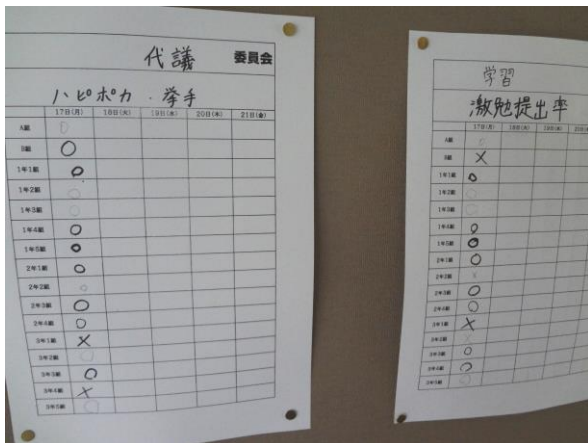 代議 委員会
ハピポカ・挙手
17日(月) 18日(火) 19日(水) 20日(木) 21日(金)
A組 ○
B組 ○
1年1組 ○
1年2組 ○
1年3組 ○
1年4組 ○
1年5組 ○
2年1組 ○
2年2組 ○
2年3組 ○
2年4組 ○
3年1組 ×
3年2組 ○
3年3組 ○
3年4組 ×
3年5組 ○
学習
激勉提出率
17日(月) 18日(火) 19日(水)
A組 ○
B組 ×
1年1組 ○
1年2組 ○
1年3組 ○
1年4組 ○
1年5組 ○
2年1組 ○
2年2組 ×
2年3組 ○
2年4組 ○
3年1組 ×
3年2組 ×
3年3組 ○
3年4組 ○
3年5組 ○